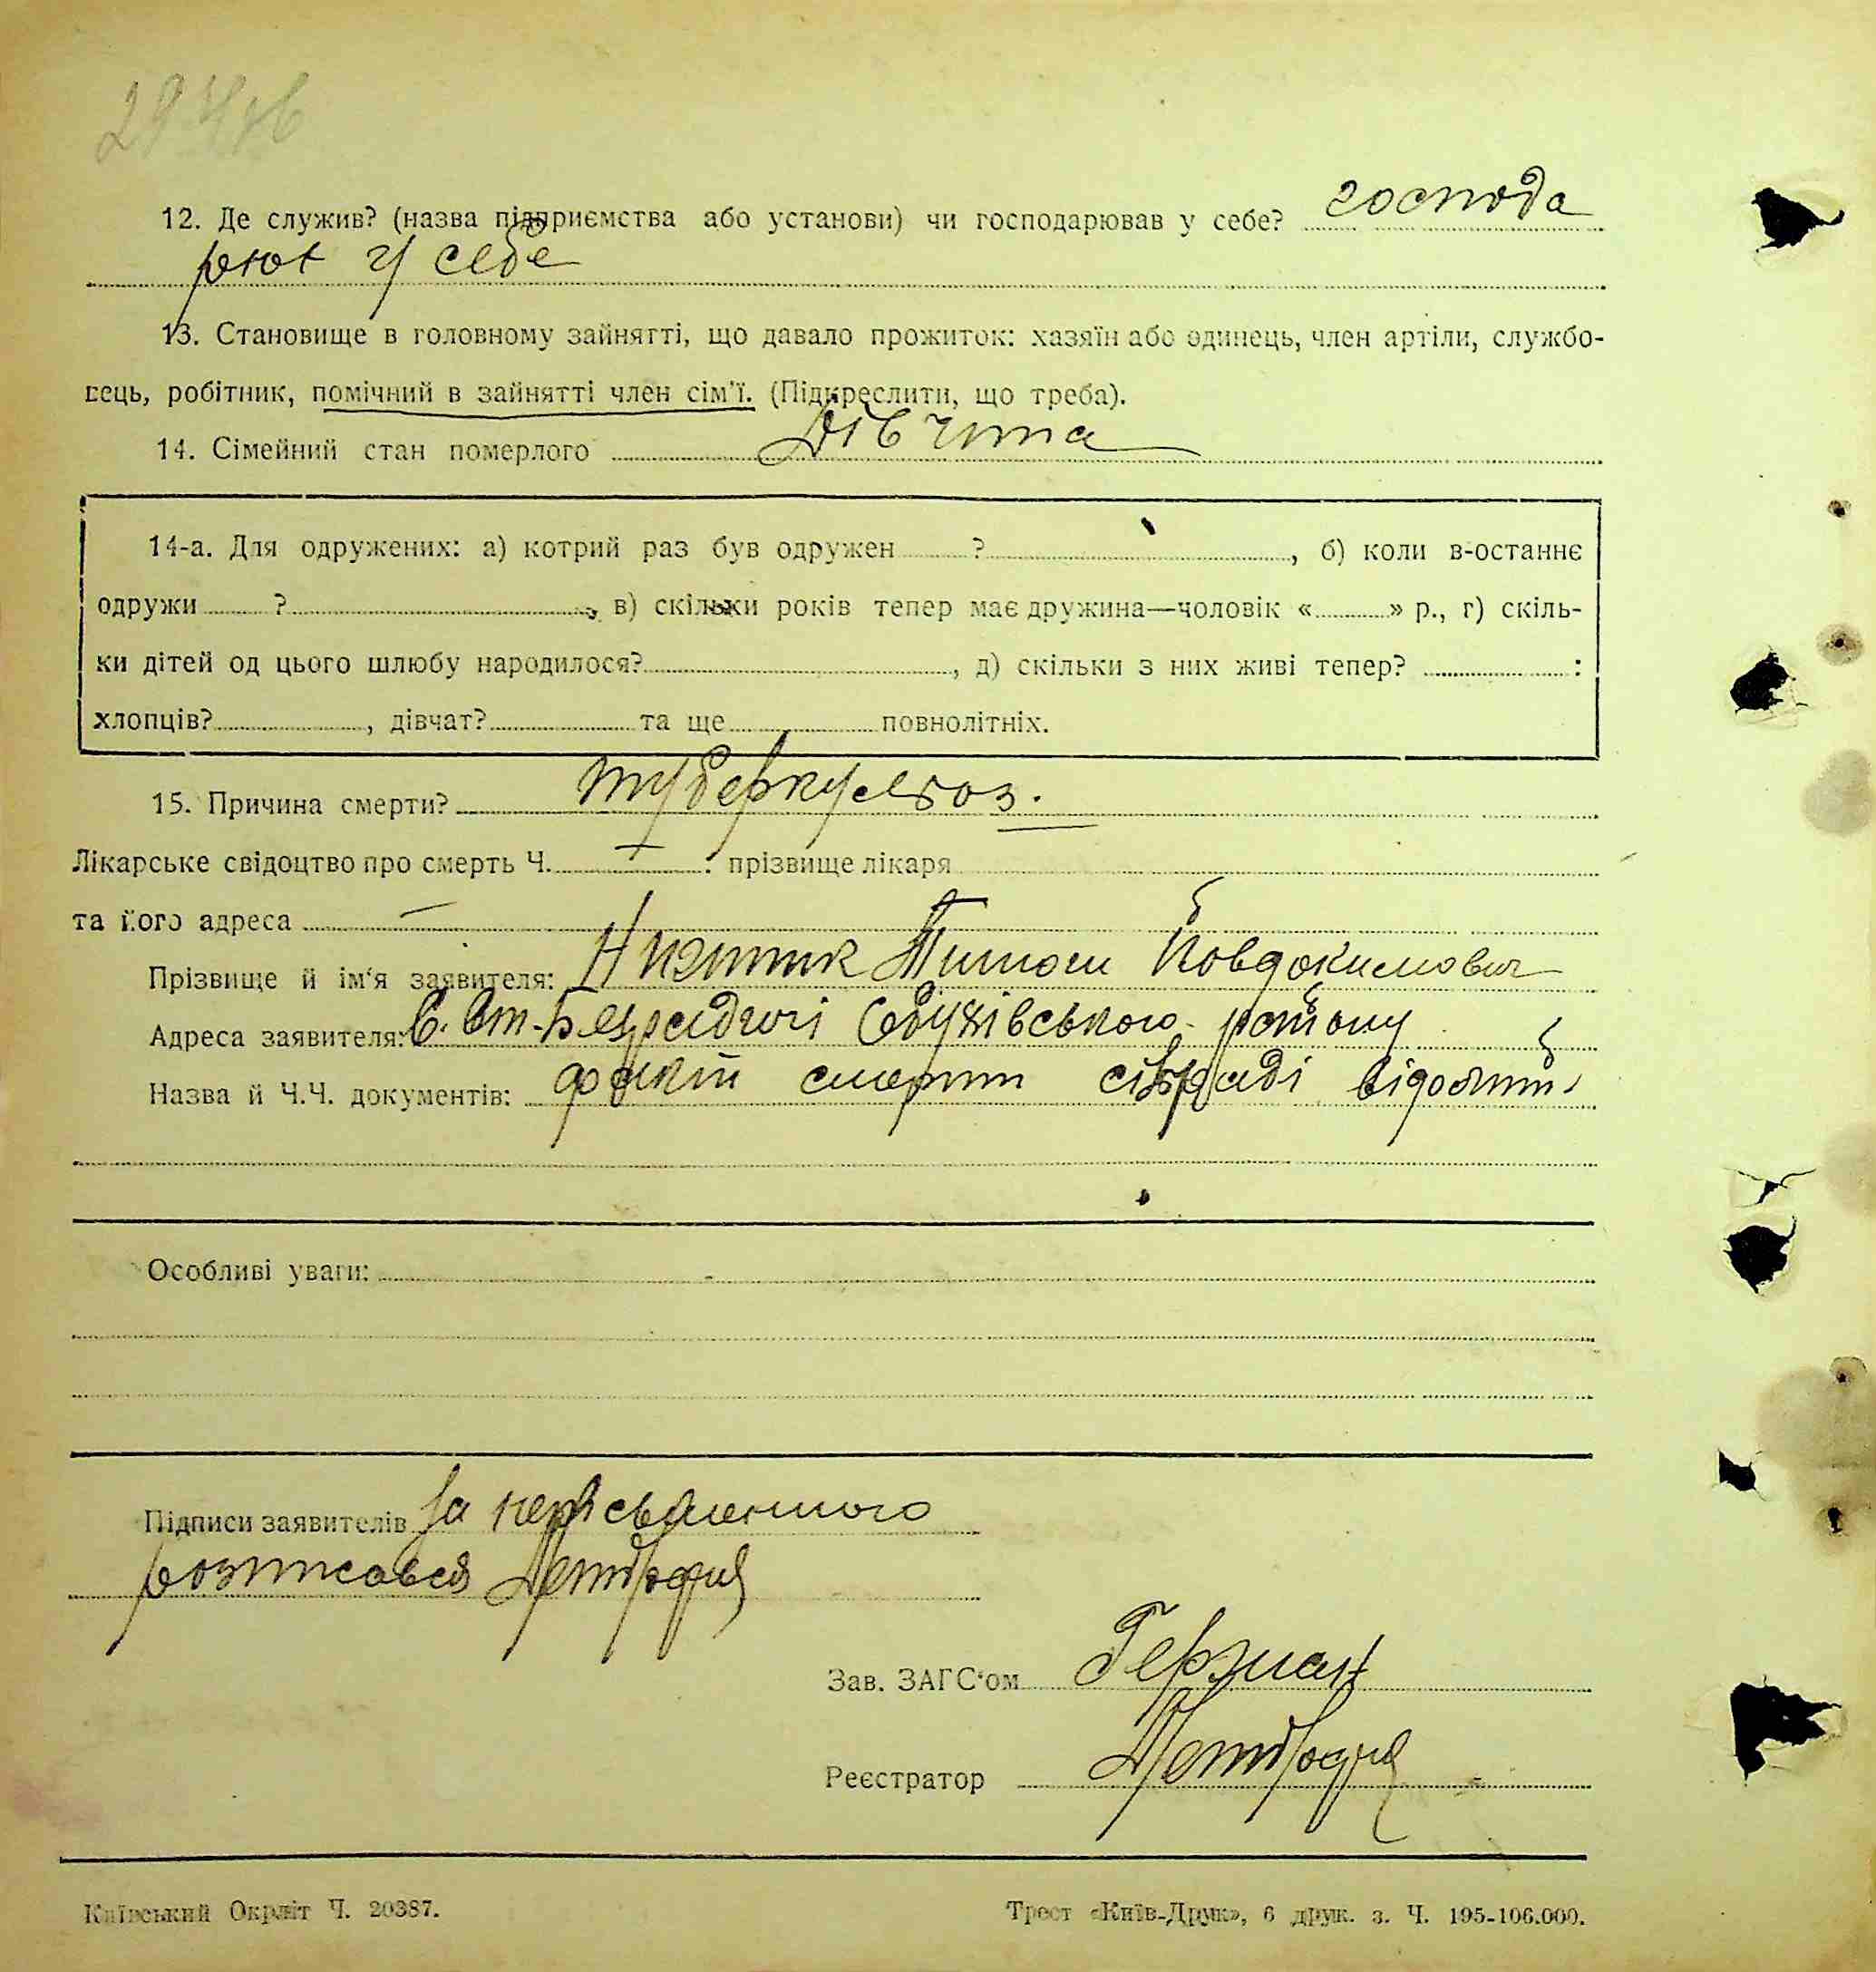 12. Де служив? (назва підприємства або установи) чи господарював у себе? господа
рют у себе
13. Становище в головному зайнятті, що давало прожиток: хазяїн або одинець, член артіли, службо-
вець, робітник, помічний в зайнятті член сім'ї. (Підкреслити, що треба).
14. Сімейний стан померлого дівчина
14-а. Для одружених: а) котрий раз був одружен ? , б) коли в-останнє
одружи ? , в) скільки років тепер має дружина—чоловік « » р., г) скіль-
ки дітей од цього шлюбу народилося? , д) скільки з них живі тепер? :
хлопців? , дівчат? та ще повнолітніх.
15. Причина смерти? туберкульоз.
Лікарське свідоцтво про смерть Ч. — : прізвище лікаря
та його адреса —
Прізвище й ім'я заявителя: Тимош Йовдокимович
Адреса заявителя: с. Ст.-Безрадичі Обухівського району
Назва й Ч.Ч. документів: факт смерти сільраді відомий
Особливі уваги:
Підписи заявителів За неписьменного
розписався
Зав. ЗАГС'ом Герман
Реєстратор
Київський Окрліт Ч. 20387.
Трест «Київ-Друк», 6 друк. з. Ч. 195-106.000.